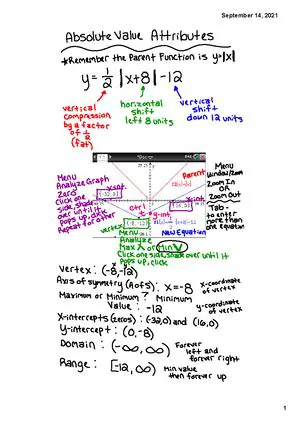 September 14, 2021
Absolute Value Attributes
*Remember the Parent Function is y=|x|
y = 1/2 |x+8| -12
vertical compression by a factor of 1/2 (fat)
horizontal shift left 8 units
vertical shift down 12 units
Menu
Analyze Graph
Zero
Click one side, shade over until it pops up, click
Repeat for other
x-int
(-32,0)
Parent
x-int
(16,0)
ctrl
t
y-int
vertex
(-8,-12)
New Equation
Menu
Analyze
Max Λ or Min V
Click one side, shade over until it pops up, click
Menu
Window/Zoom
Zoom In
OR
Zoom Out
Tab -
to enter more than one equation
Vertex: (-8,-12)
Axis of symmetry (Aofs): x=-8 x-coordinate of vertex
Maximum or Minimum? Minimum
Value: -12 y-coordinate of vertex
X-intercepts (zeros): (-32,0) and (16,0)
Y-intercept: (0,-8)
Domain: (-∞, ∞) Forever left and forever right
Range: [-12, ∞) Min value then forever up
1